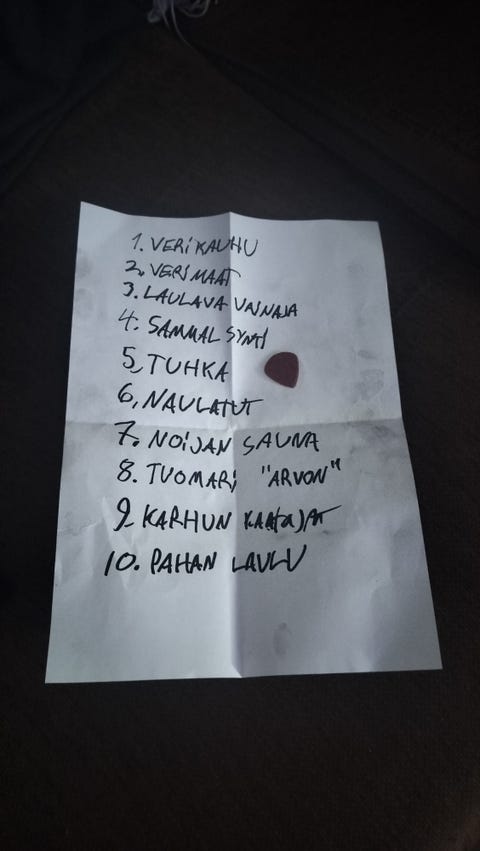 1. VERIKAUHU
2. VERIMAAT
3. LAULAVA VAINAJA
4. SAMMAL SYNTI
5, TUHKA
6, NAULATUT
7. NOIJAN SAUNA
8. TUOMARI "ARVON"
9. KARHUN KAATAJAT
10. PAHAN LAULU